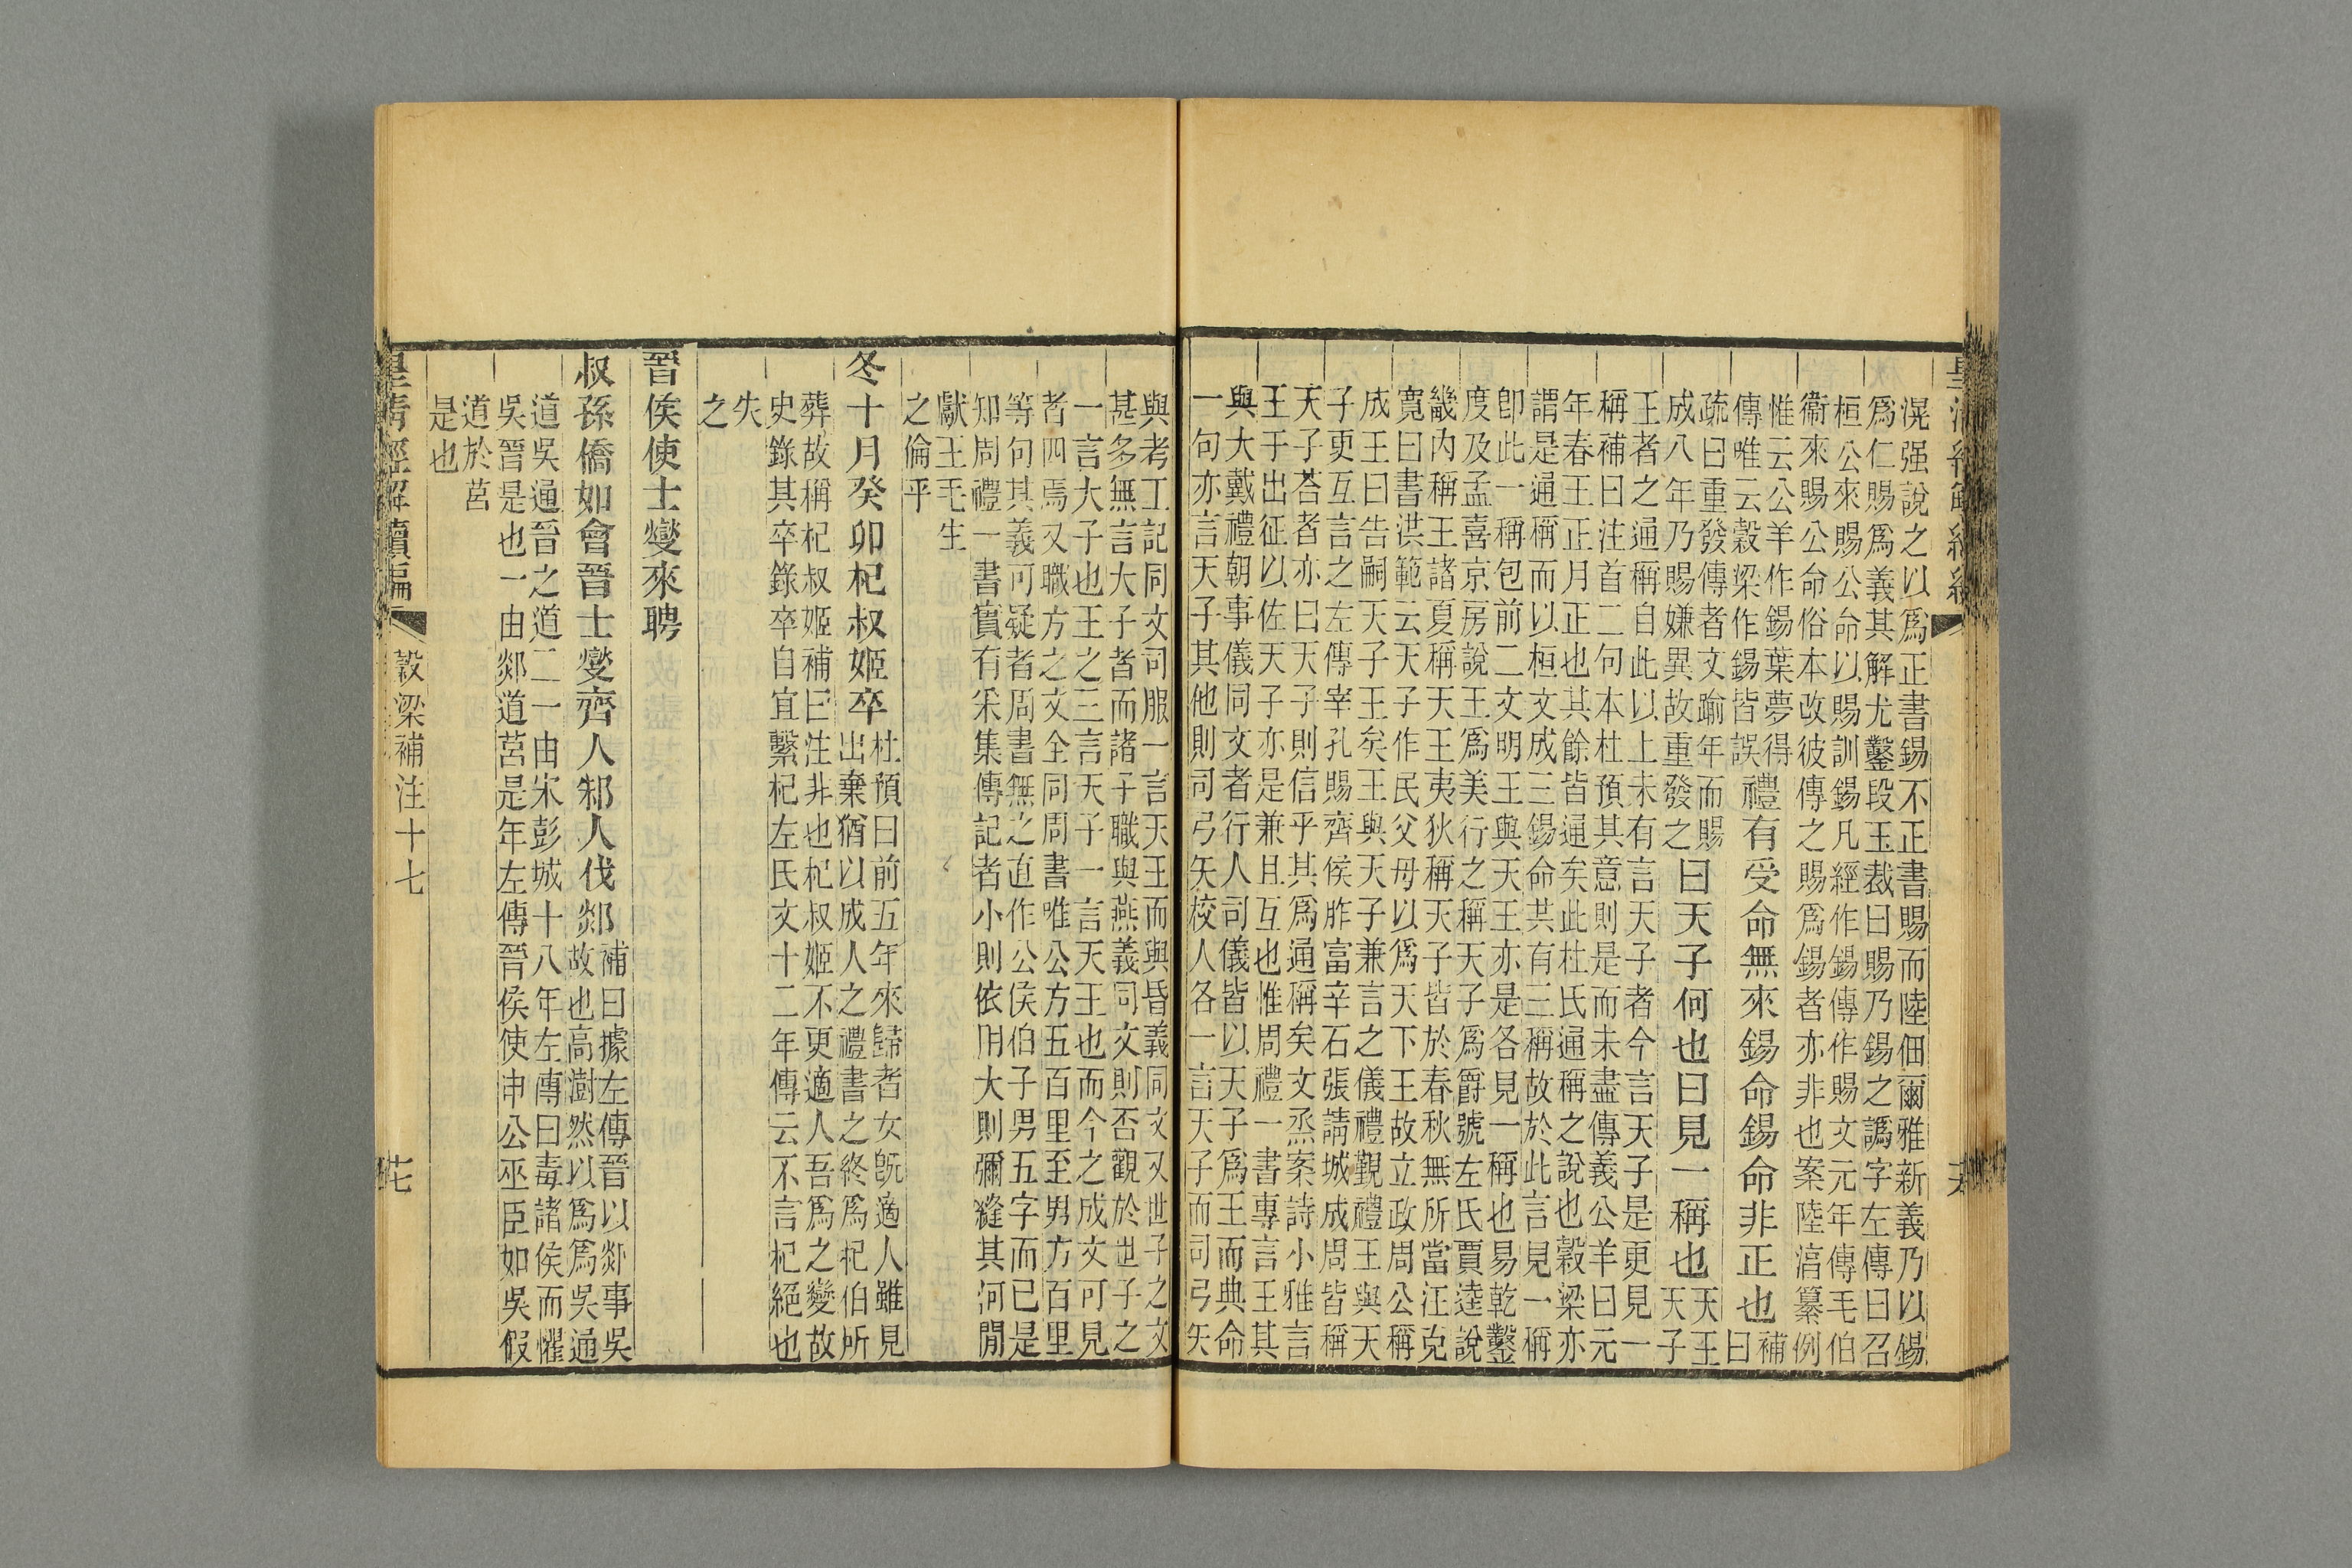 滉强說之以爲正書錫不正書賜而陸佃爾雅新義乃以錫
爲仁賜爲義其解尤鑿段玉裁曰賜乃錫之譌字左傳曰召
桓公來賜公命以賜訓錫凡經作錫傳作賜文元年傳毛伯
衞來賜公命俗本改彼傳之賜爲錫者亦非也案陸淳纂例
惟云公羊作錫葉夢得
傳唯云穀梁作錫皆誤
禮有受命無來錫命錫命非正也
補
曰
疏曰重發傳者文踰年而賜
成八年乃賜嫌異故重發之
曰天子何也曰見一稱也
天王
天子
王者之通稱自此以上未有言天子者今言天子是更見一
稱補曰注首二句本杜預其意則是而未盡傳義公羊曰元
年春王正月正也其餘皆通矣此杜氏通稱之說也穀梁亦
謂是通稱而以桓文成三錫命其有三稱故於此言見一稱
卽此一稱包前二文明王與天王亦是各見一稱也易乾鑿
度及孟喜京房說王爲美行之稱天子爲爵號左氏賈逵說
畿內稱王諸夏稱天王夷狄稱天子皆於春秋無所當江克
寬曰書洪範云天子作民父母以爲天下王故立政周公稱
成王曰告嗣天子王矣王與天子兼言之儀禮覲禮王與天
子更互言之左傳宰孔賜齊侯胙富辛石張請城成周皆稱
天子荅者亦曰天子則信乎其爲通稱矣文烝案詩小雅言
王于出征以佐天子亦是兼且互也惟周禮一書專言王其
與大戴禮朝事儀同文者行人司儀皆以天子爲王而典命
一句亦言天子其他則司弓矢校人各一言天子而司弓矢
與考工記同文司服一言天王而與昏義同文又世子之文
甚多無言大子者而諸子職與燕義同文則否觀於世子之
一言大子也王之三言天子一言天王也而今之成文可見
者四焉又職方之文全同周書唯公方五百里至男方百里
等句其義可疑者周書無之直作公侯伯子男五字而已是
知周禮一書實有釆集傳記者小則依用大則彌縫其河閒
獻王毛生
之倫乎
冬十月癸卯杞叔姬卒
杜預曰前五年來歸者女旣適人雖見
出棄猶以成人之禮書之終爲杞伯所
葬故稱杞叔姬補曰注非也杞叔姬不更適人吾爲之變故
史錄其卒錄卒自宜繫杞左氏文十二年傳云不言杞絕也
失
之
晉侯使士燮來聘
叔孫僑如會晉士燮齊人邾人伐郯
補曰據左傳晉以郯事吳
故也高澍然以爲爲吳通
道吳通晉之道二一由宋彭城十八年左傳曰毒諸侯而懼
吳晉是也一由郯道莒是年左傳晉侯使申公巫臣如吳假
道於莒
是也
皇清經解續編
穀梁補注十七